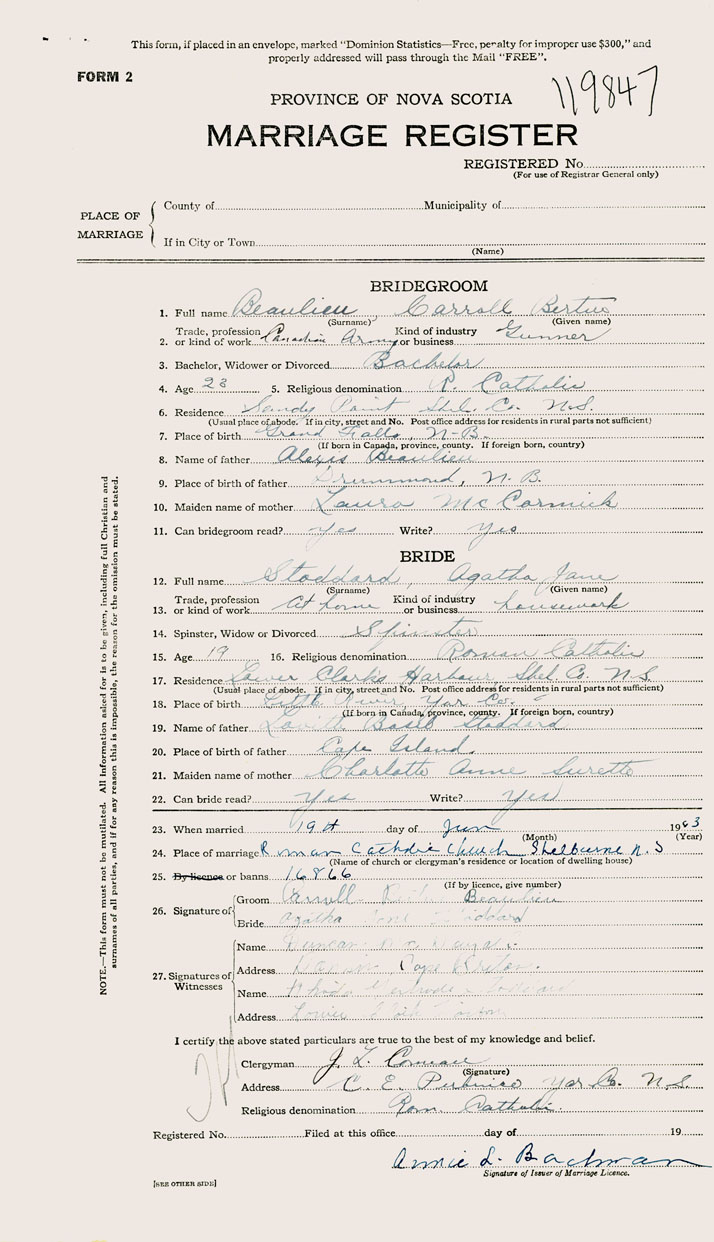 This form, if placed in an envelope, marked "Dominion Statistics—Free, penalty for improper use $300," and
properly addressed will pass through the Mail "FREE".
FORM 2
119847
PROVINCE OF NOVA SCOTIA
MARRIAGE REGISTER
REGISTERED No.
(For use of Registrar General only)
PLACE OF MARRIAGE
County of Municipality of
If in City or Town
(Name)
BRIDEGROOM
1. Full name Beaulieu Carroll
(Surname) (Given name)
2. Trade, profession or kind of work Canadian Army Kind of industry or business Gunner
3. Bachelor, Widower or Divorced Bachelor
4. Age 23 5. Religious denomination R. Catholic
6. Residence Sandy Point Shel. Co. N.S.
(Usual place of abode. If in city, street and No. Post office address for residents in rural parts not sufficient)
7. Place of birth Grand Falls, N-B.
(If born in Canada, province, county. If foreign born, country)
8. Name of father Alexis Beaulieu
9. Place of birth of father Drummond, N.B.
10. Maiden name of mother Laura McCormick
11. Can bridegroom read? yes Write? yes
BRIDE
12. Full name Stoddard, Agatha Jane
(Surname) (Given name)
13. Trade, profession or kind of work At home Kind of industry or business housework
14. Spinster, Widow or Divorced Spinster
15. Age 19 16. Religious denomination Roman Catholic
17. Residence Lower Clarks Harbour, Shel. Co. N.S.
(Usual place of abode. If in city, street and No. Post office address for residents in rural parts not sufficient)
18. Place of birth River, Yar. Co.
(If born in Canada, province, county. If foreign born, country)
19. Name of father Stoddard
20. Place of birth of father Cape Island.
21. Maiden name of mother Charlotte Anne Surette
22. Can bride read? yes Write? yes
23. When married 19th day of Jun 1963
(Month) (Year)
24. Place of marriage Roman Catholic Church Shelburne N.S
(Name of church or clergyman's residence or location of dwelling house)
25. By licence or banns 16866
(If by licence, give number)
26. Signature of
Groom Beaulieu
Bride Agatha Jane Stoddard
27. Signatures of Witnesses
Name Duncan
Address Cape Breton.
Name Gertrude Stoddard
Address Lower
NOTE.—This form must not be mutilated. All Information asked for is to be given, including full Christian and
surnames of all parties, and if for any reason this is impossible, the reason for the omission must be stated.
I certify the above stated particulars are true to the best of my knowledge and belief.
Clergyman J. L.
(Signature)
Address C. E. Pubnico Yar Co. N.S.
Religious denomination Rom. Catholic.
Registered No. Filed at this office day of 19
Annie L. Bachman
Signature of Issuer of Marriage Licence.
[SEE OTHER SIDE]